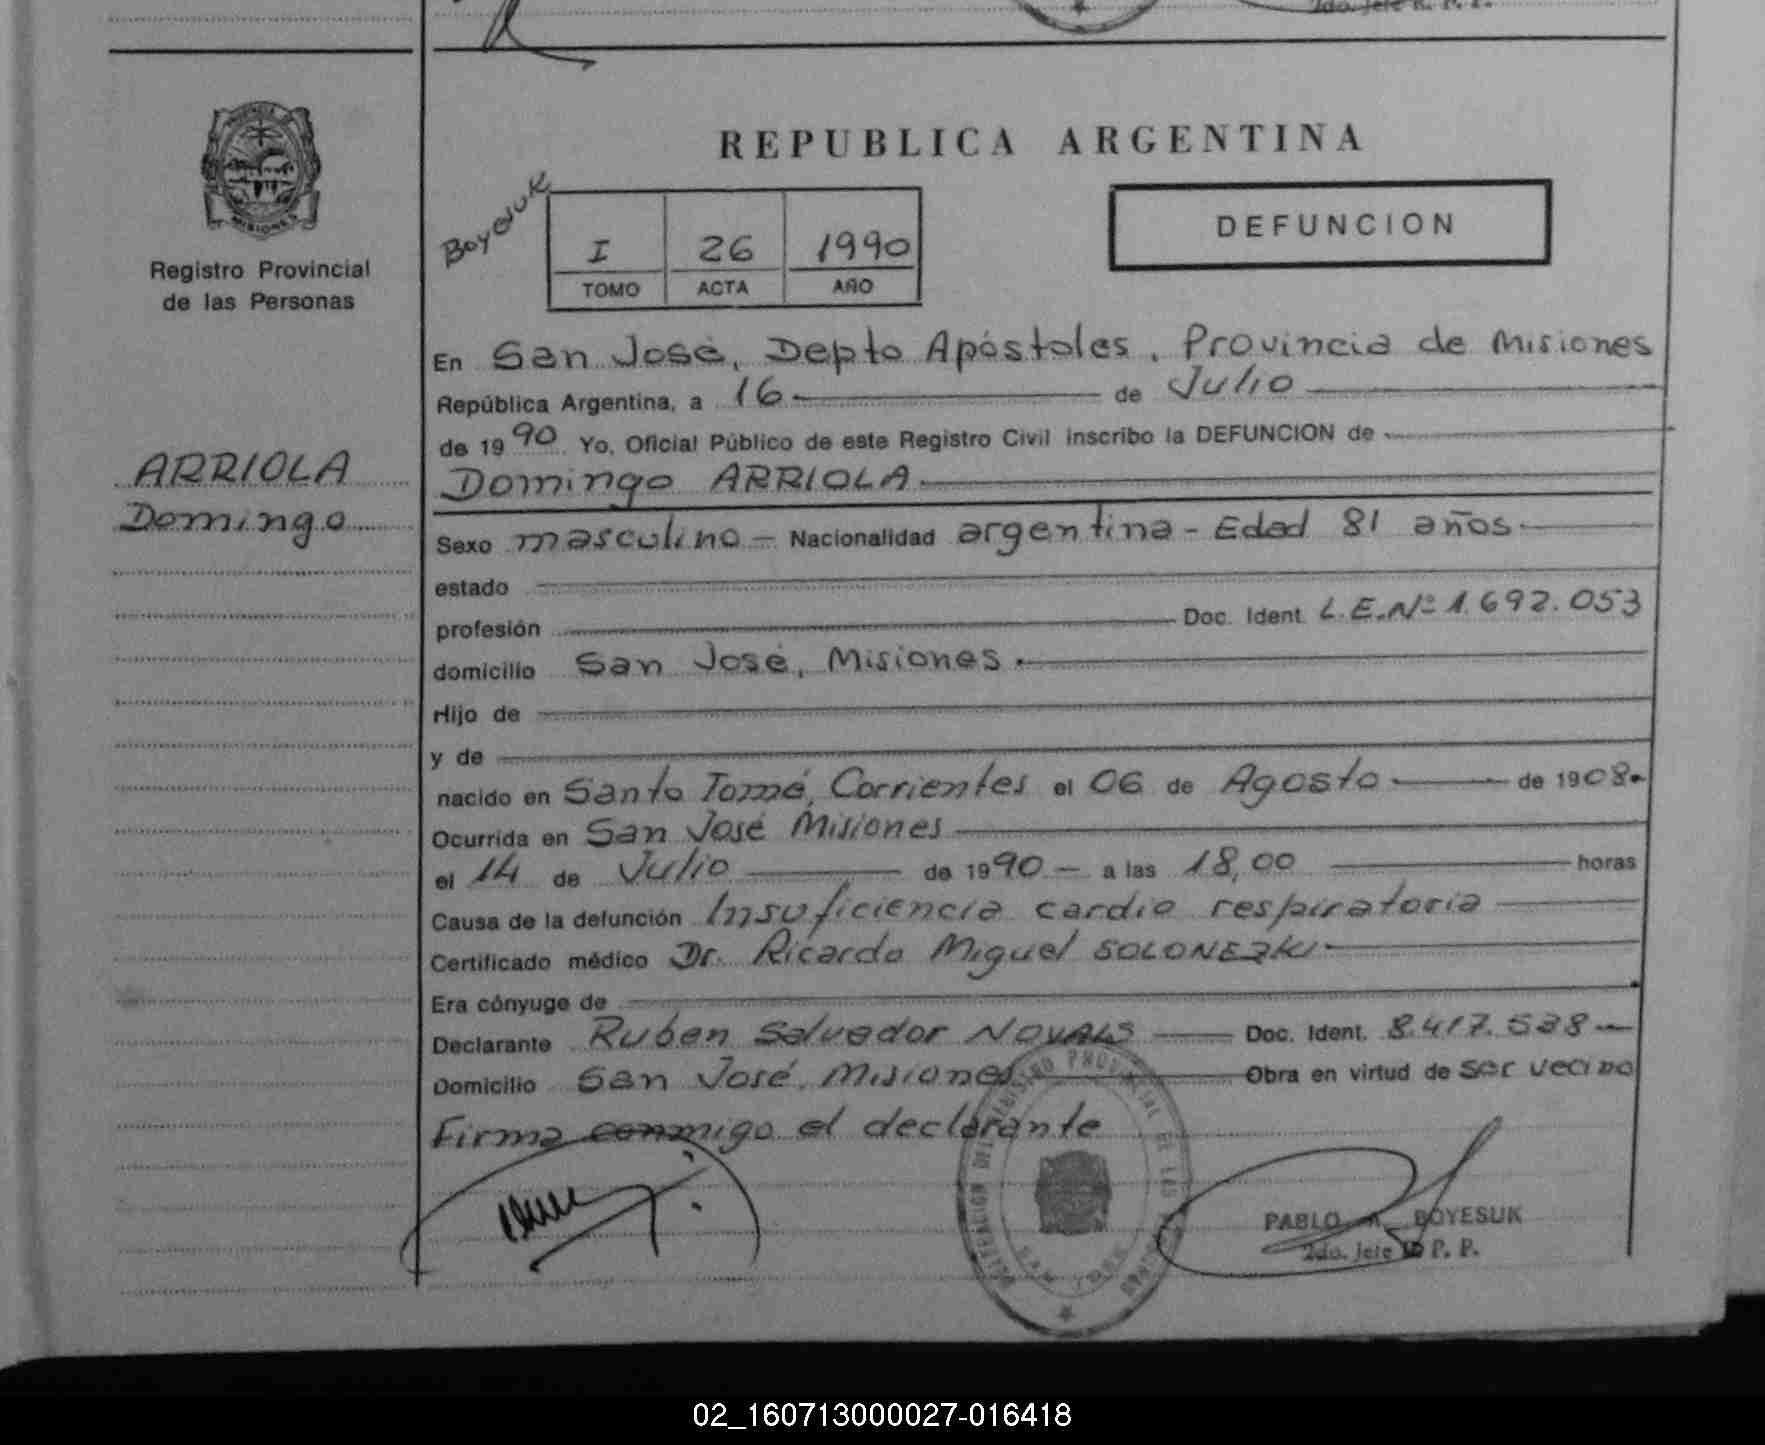 2do. Jefe R. P. P.
PROVINCIA DE
MISIONES
Registro Provincial
de las Personas
ARRIOLA
Domingo
REPUBLICA ARGENTINA
Boyesuk
I 26 1990
TOMO ACTA AÑO
DEFUNCION
En San José, Depto Apóstoles, Provincia de Misiones
República Argentina, a 16 de Julio
de 1990 Yo, Oficial Público de este Registro Civil inscribo la DEFUNCION de
Domingo ARRIOLA
Sexo masculino - Nacionalidad argentina - Edad 81 años
estado
profesión Doc. Ident. L.E.Nº 1.692.053
domicilio San José, Misiones.
Hijo de
y de
nacido en Santo Tomé, Corrientes el 06 de Agosto de 1908.
Ocurrida en San José Misiones
el 14 de Julio de 1990 - a las 18,00 horas
Causa de la defunción Insuficiencia cardio respiratoria
Certificado médico Dr. Ricardo Miguel SOLONEZKI
Era cónyuge de
Declarante Ruben Salvador NOVAIS Doc. Ident. 8.417.538
Domicilio San José, Misiones Obra en virtud de ser vecino
Firma conmigo el declarante
DELEGACION DEL REGISTRO PROVINCIAL DE LAS PERSONAS
SAN JOSE
PABLO A. BOYESUK
2do. Jefe R. P. P.
02_160713000027-016418